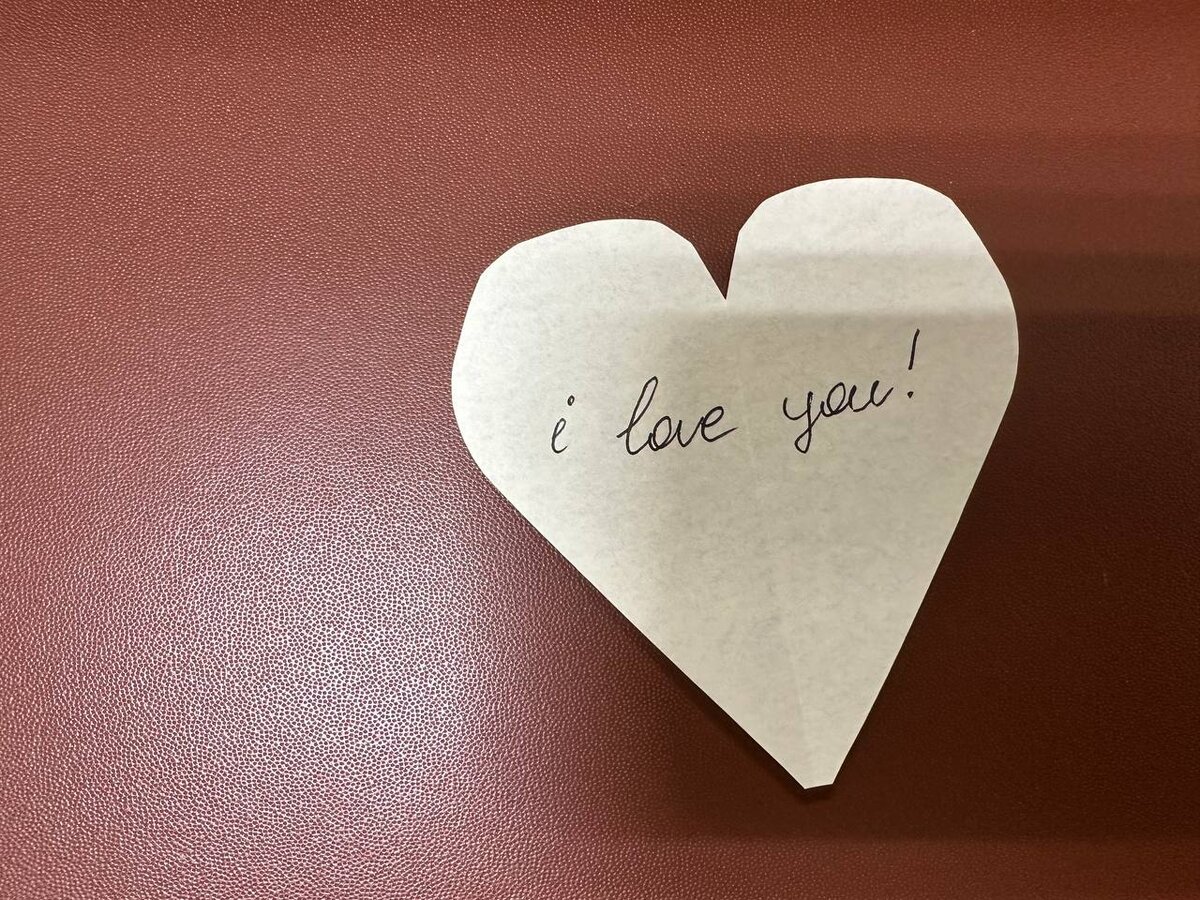 i love you!